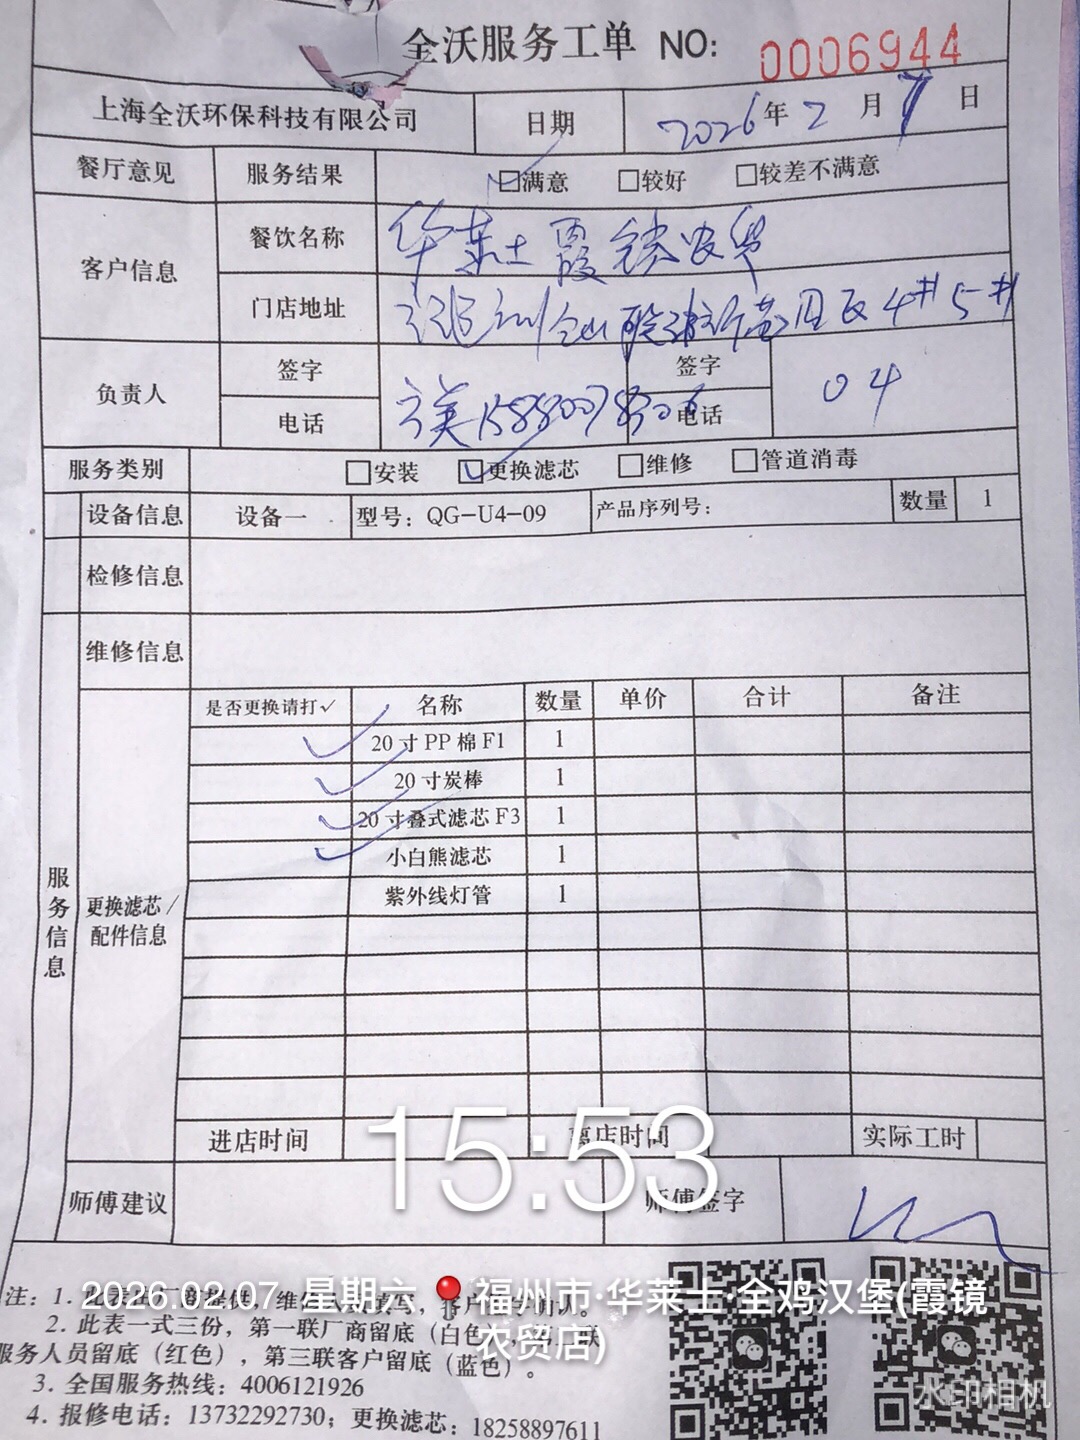 全沃服务工单 NO: 0006944
上海全沃环保科技有限公司 日期 2026年2月7日
餐厅意见 服务结果 ☑满意 □较好 □较差不满意
客户信息 餐饮名称 华莱士霞镜农贸
门店地址 仓山 4# 5#
负责人 签字 签字 04
电话 电话
服务类别 □安装 ☑更换滤芯 □维修 □管道消毒
设备信息 设备一 型号：QG-U4-09 产品序列号： 数量 1
检修信息
维修信息
服务信息
更换滤芯/配件信息
是否更换请打✓ 名称 数量 单价 合计 备注
✓ 20寸PP棉F1 1
✓ 20寸炭棒 1
✓ 20寸叠式滤芯F3 1
✓ 小白熊滤芯 1
紫外线灯管 1
进店时间 离店时间 实际工时
15:53
师傅建议 师傅签字
2026.02.07 星期六 福州市·华莱士·全鸡汉堡(霞镜农贸店)
注：1. 此表由厂商提供，
2. 此表一式三份，第一联厂商留底（白色），
服务人员留底（红色），第三联客户留底（蓝色）。
3. 全国服务热线：4006121926
4. 报修电话：13732292730；更换滤芯：18258897611
水印相机